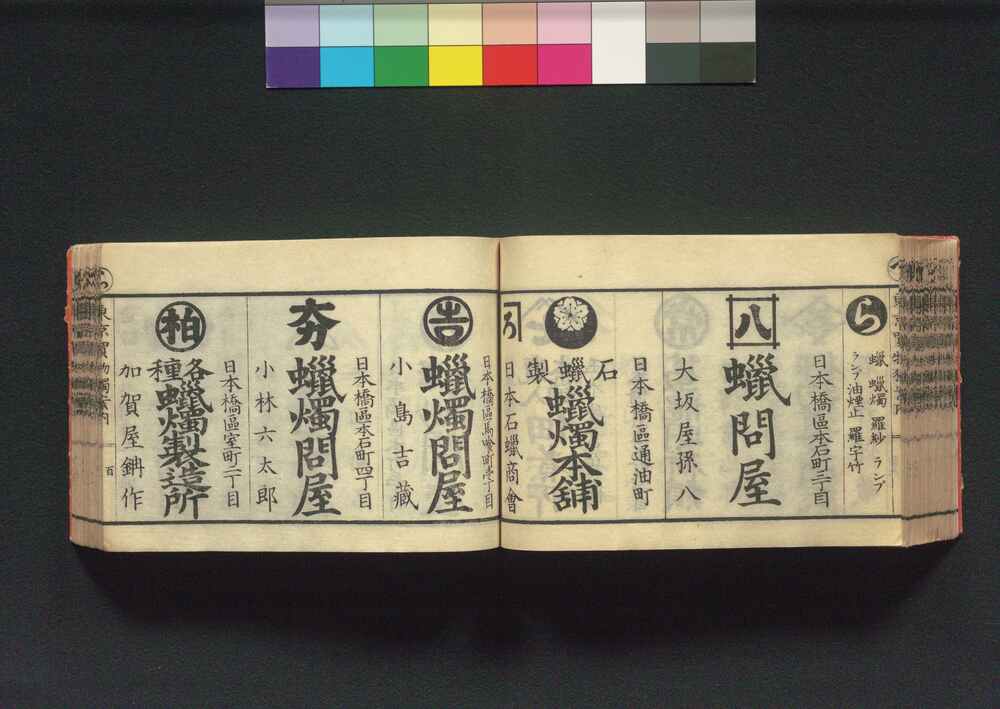 ら
蠟 蠟燭 羅紗 ランプ
ランプ油煙止 羅宇竹
八
日本橋區本石町三丁目
蠟問屋
大坂屋孫八
日本橋區通油町
石蠟製
蠟燭本舖
日本石蠟商會
日本橋區馬喰町壱丁目
吉
蠟燭問屋
小島吉藏
日本橋區本石町四丁目
夯
蠟燭問屋
小林六太郎
日本橋區室町二丁目
柏
各種
蠟燭製造所
加賀屋 作
百